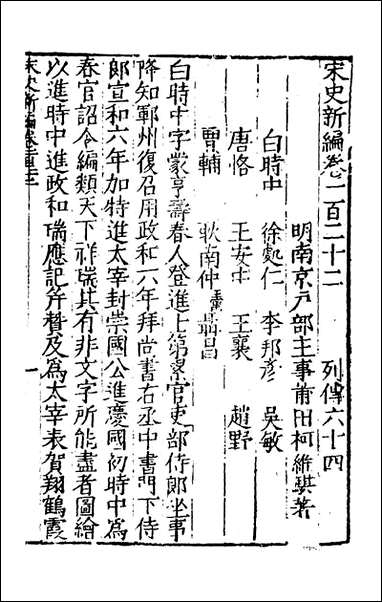 宋史新編卷一百二十二 列傳六十四
明南京戶部主事莆田柯維騏著
白時中 徐處仁 李邦彥 吳敏
唐恪 王安中 王襄 趙野
曹輔 耿南仲 聶昌
白時中字蒙亨壽春人登進士第累官吏部侍郎坐事
降知鄆州復召用政和六年拜尚書右丞中書門下侍
郎宣和六年加特進太宰封崇國公進慶國初時中為
春官詔令編類天下祥瑞其有非文字所能盡者圖繪
以進時中進政和瑞應記并贊及為太宰表賀翔鶴霞
宋史新編卷一百二十二 一